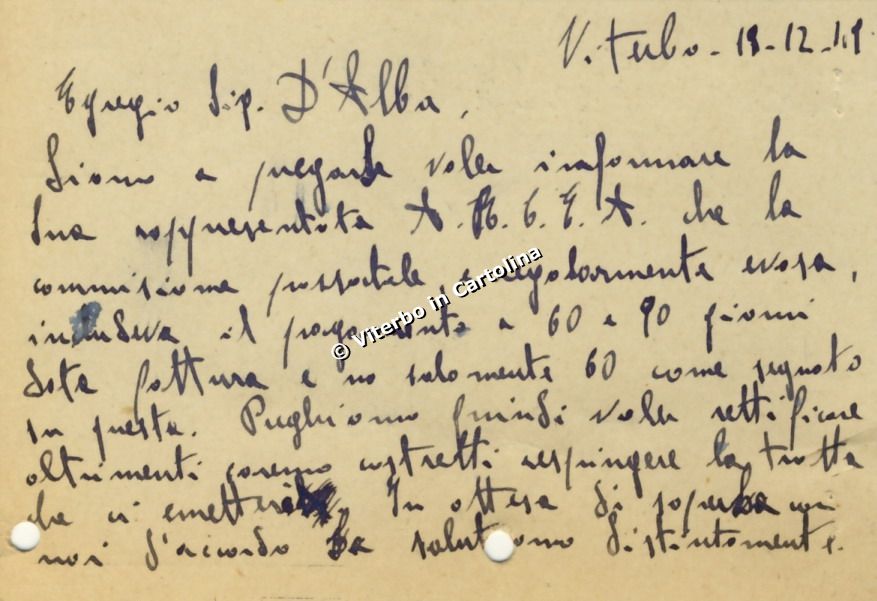 Viterbo - 19-12-49
Egregio Sig. D'Alba,
Siamo a pregarLa voler informare la
Sua rappresentata A.R.C.E.A. che la
commissione passatale, è regolarmente evasa,
includeva il pagamento a 60 e 90 giorni
data fattura e no solamente 60 come segnato
in questa. Preghiamo quindi voler rettificare
altrimenti saremo costretti respingere la tratta
che ci emetterà. In attesa di saperLa con
noi d'accordo La salutiamo distintamente.
© Viterbo in Cartolina